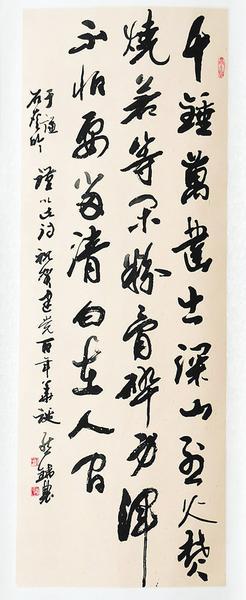 千錘萬鑿出深山烈火焚
燒若等閑粉骨碎身渾
不怕要留清白在人間
于謙
石灰吟 謹以此詩祝賀建党百年華誕